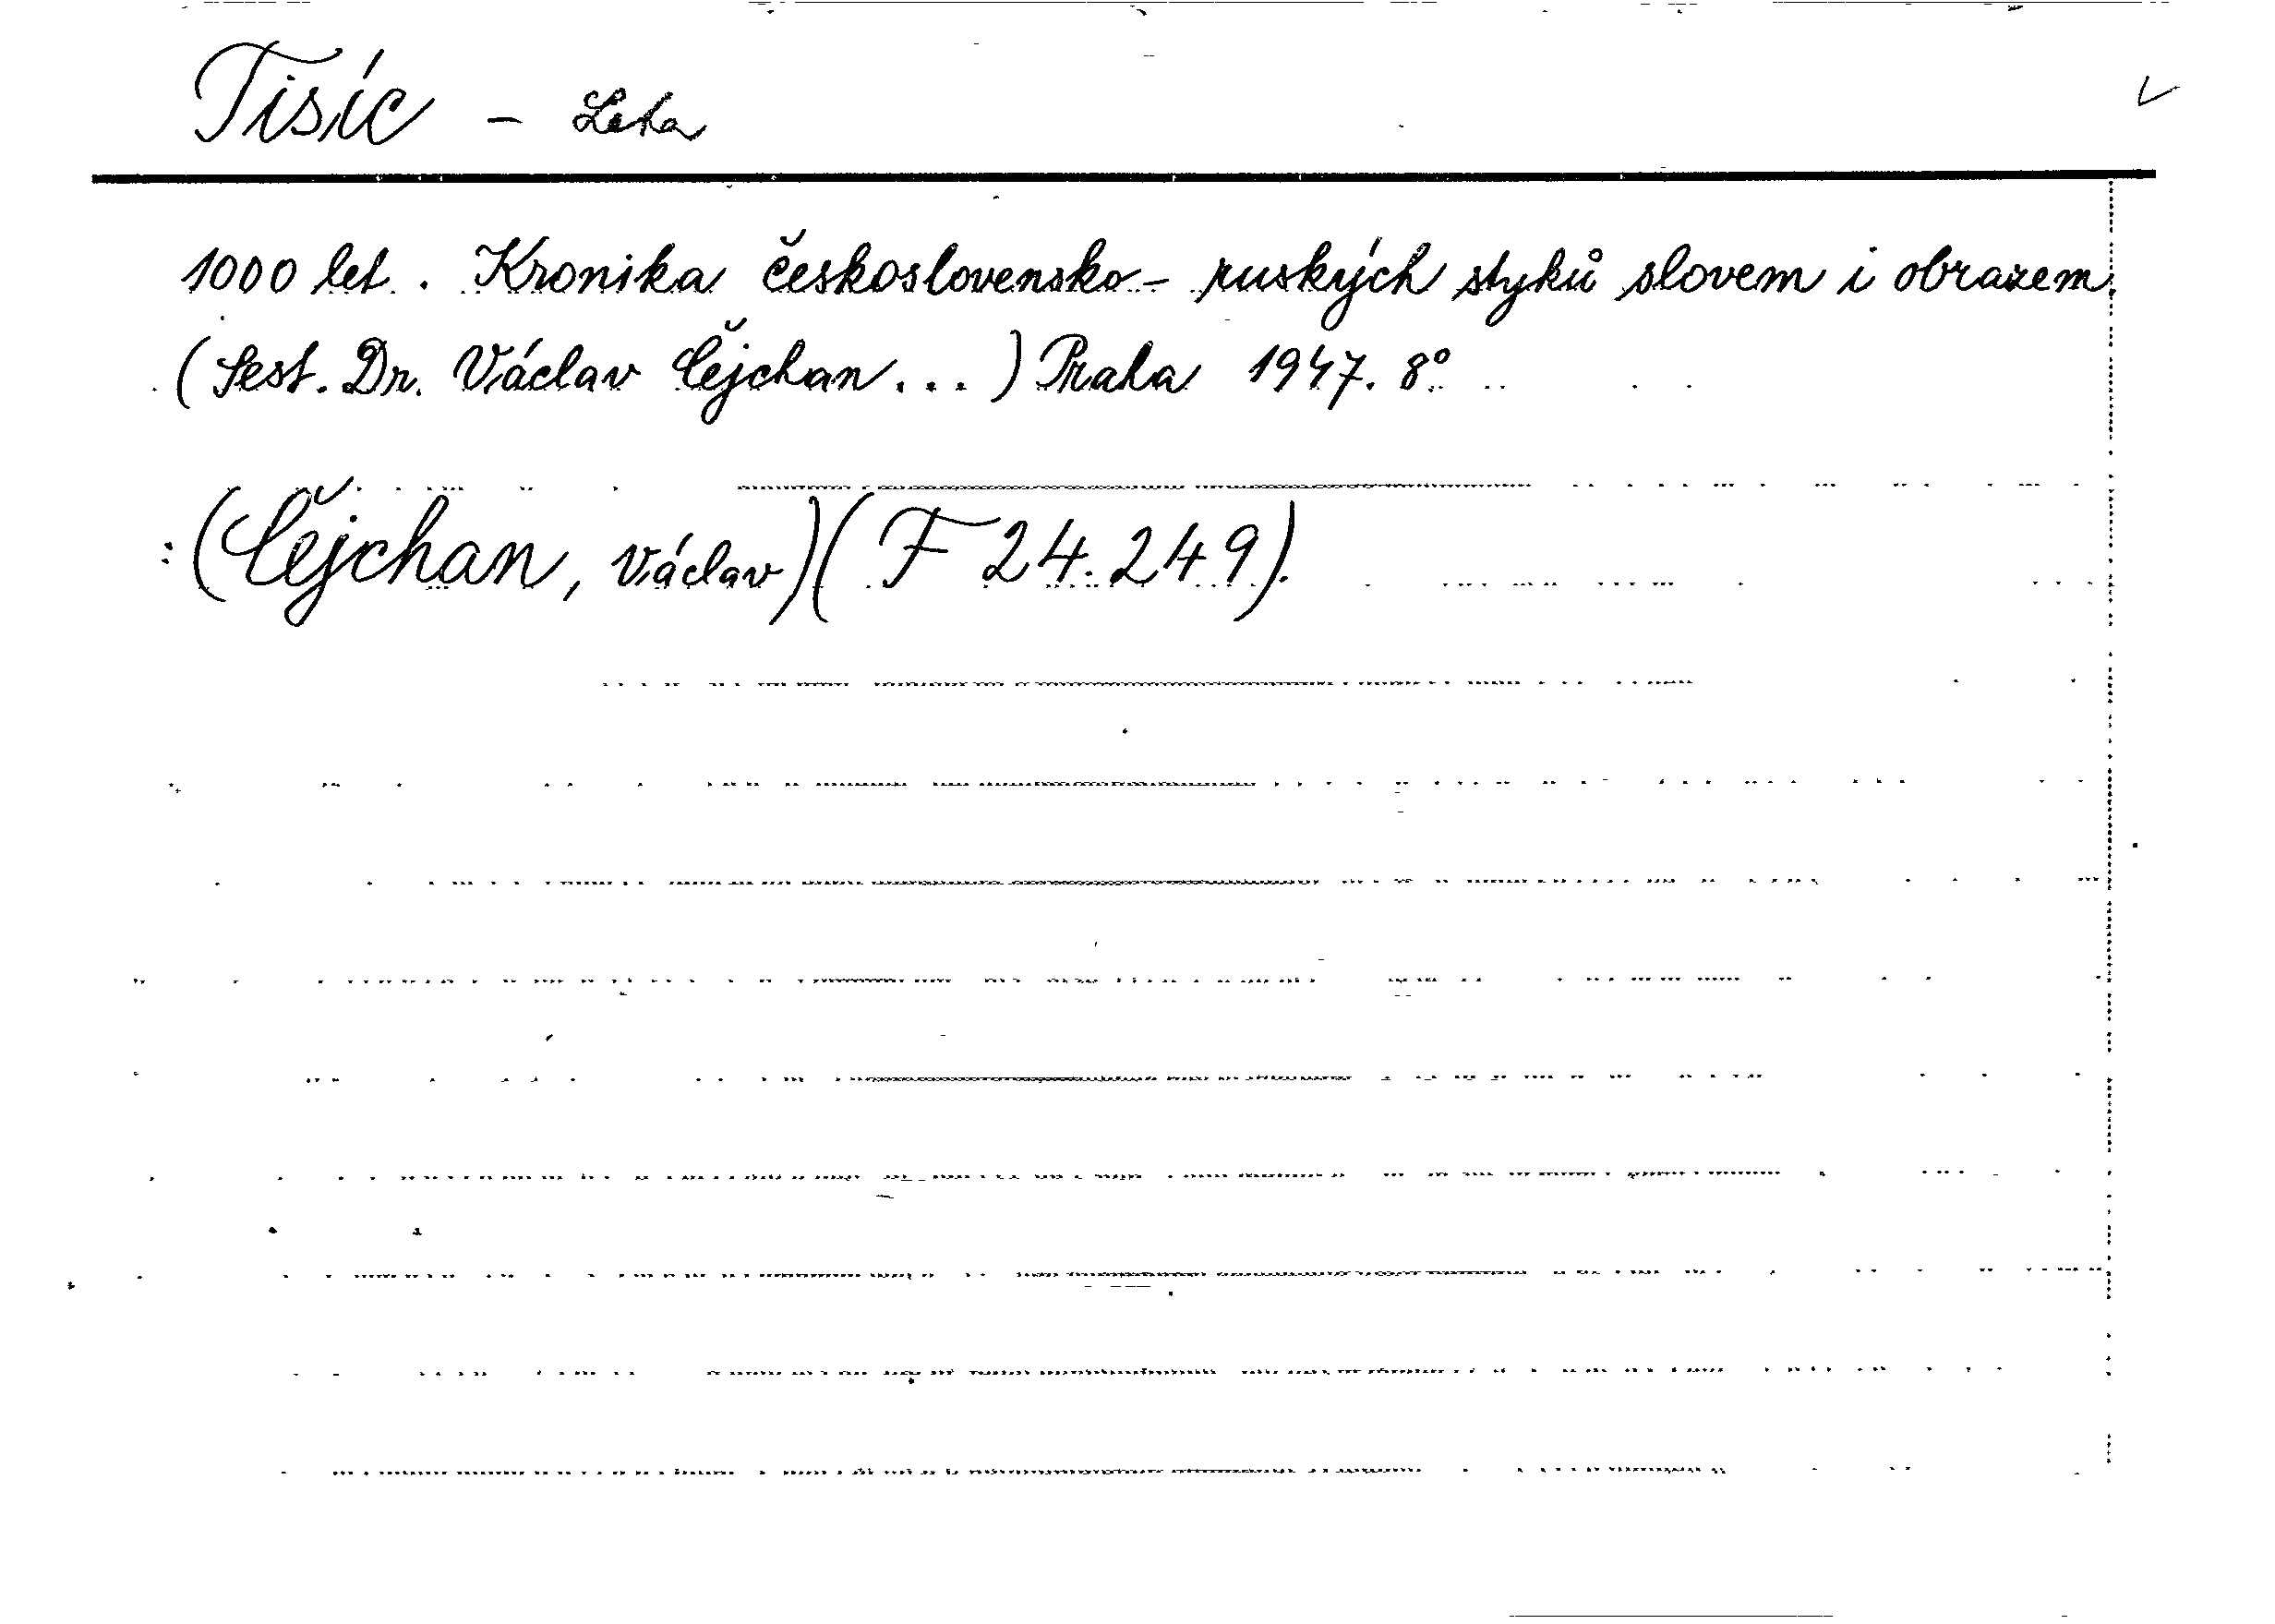 Tisíc - Leta
1000 let. Kronika československo-ruských styků slovem i obrazem.
(Sest. Dr. Václav Čejchan...) Praha 1947. 8°
:(Čejchan, Václav)(F 24.249).